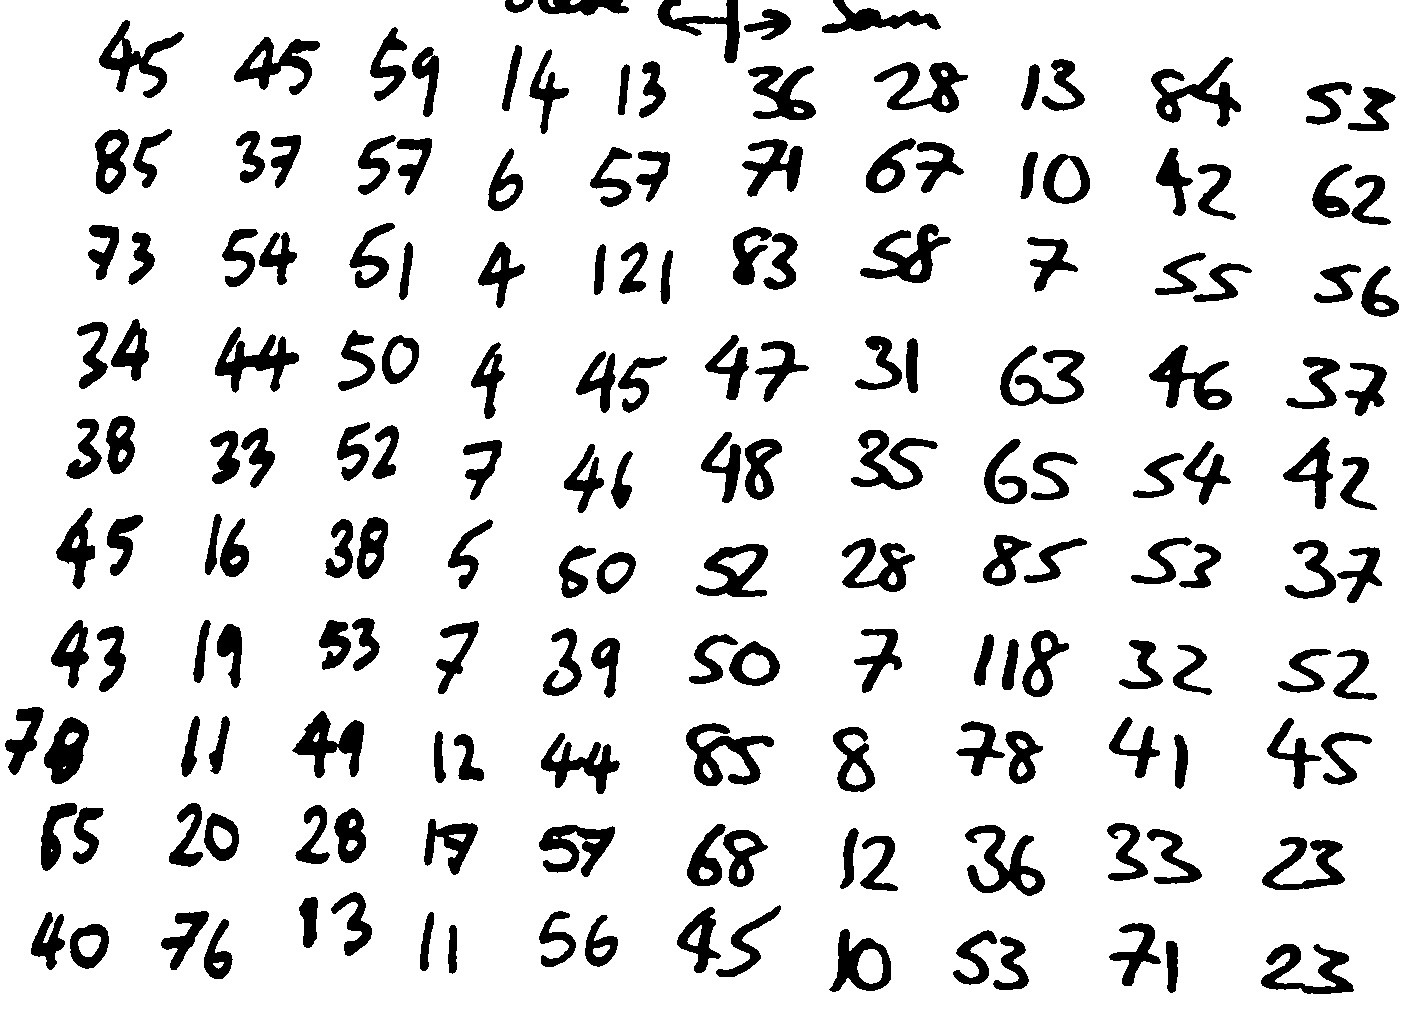 ← → Sam
45 45 59 14 13 36 28 13 84 53
85 37 57 6 57 71 67 10 42 62
73 54 51 4 121 83 58 7 55 56
34 44 50 4 45 47 31 63 46 37
38 33 52 7 46 48 35 65 54 42
45 16 38 5 50 52 28 85 53 37
43 19 53 7 39 50 7 118 32 52
78 11 49 12 44 85 8 78 41 45
65 20 28 17 57 68 12 36 33 23
40 76 13 11 56 45 10 53 71 23